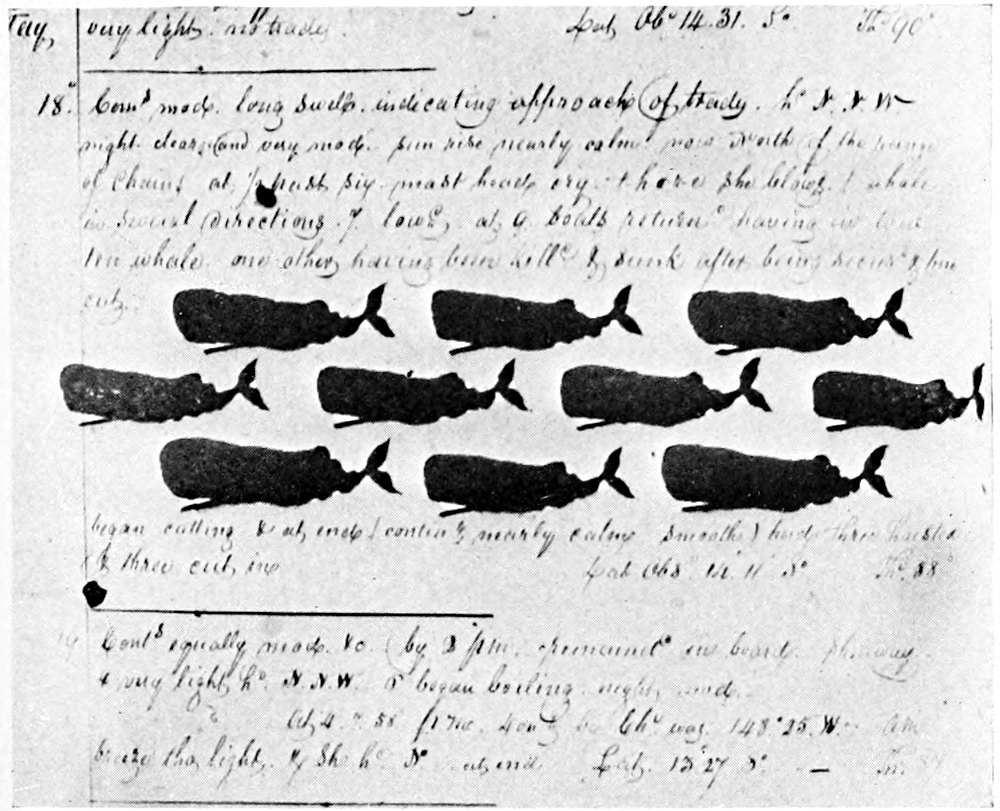 very light. no trady. Lat Obs 14.31. So Thr 90°
18. Coms mod. long swells. indicating approach of trady. hd N. N. W
night clear and very mod. sun rise nearly calm now North of the range
of Chain at ½ past six mast head cry there she blows. whale
in several directions. 7 lowd, at 9 boats returnd having in tow
ten whale. one other, having been killd & sunk after being secured & line
cut.
began cutting & at end (contin nearly calm smooth) had three hoisted
& three cut in Lat Obs 14. 11 So Thr 88°
Conts equally mod. &c. by 2 pm. on board.
& very light hd N.N.W. began boiling. night mod.
At 4. 7. 58 Chr was 148°25 W.
breeze tho light. & Ship hd No at end Lat. 13°27 So.